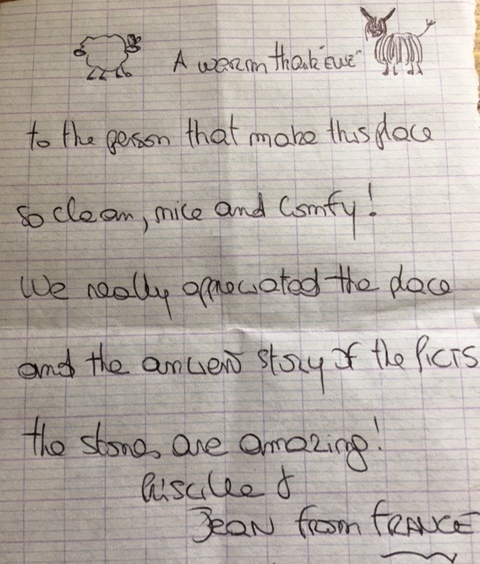 A warm thank "ewe"
to the person that make this place
so clean, nice and Comfy!
We really appreciated the place
and the ancient story of the Picts
the stones are amazing!
Priscille &
Jean from FRANCE